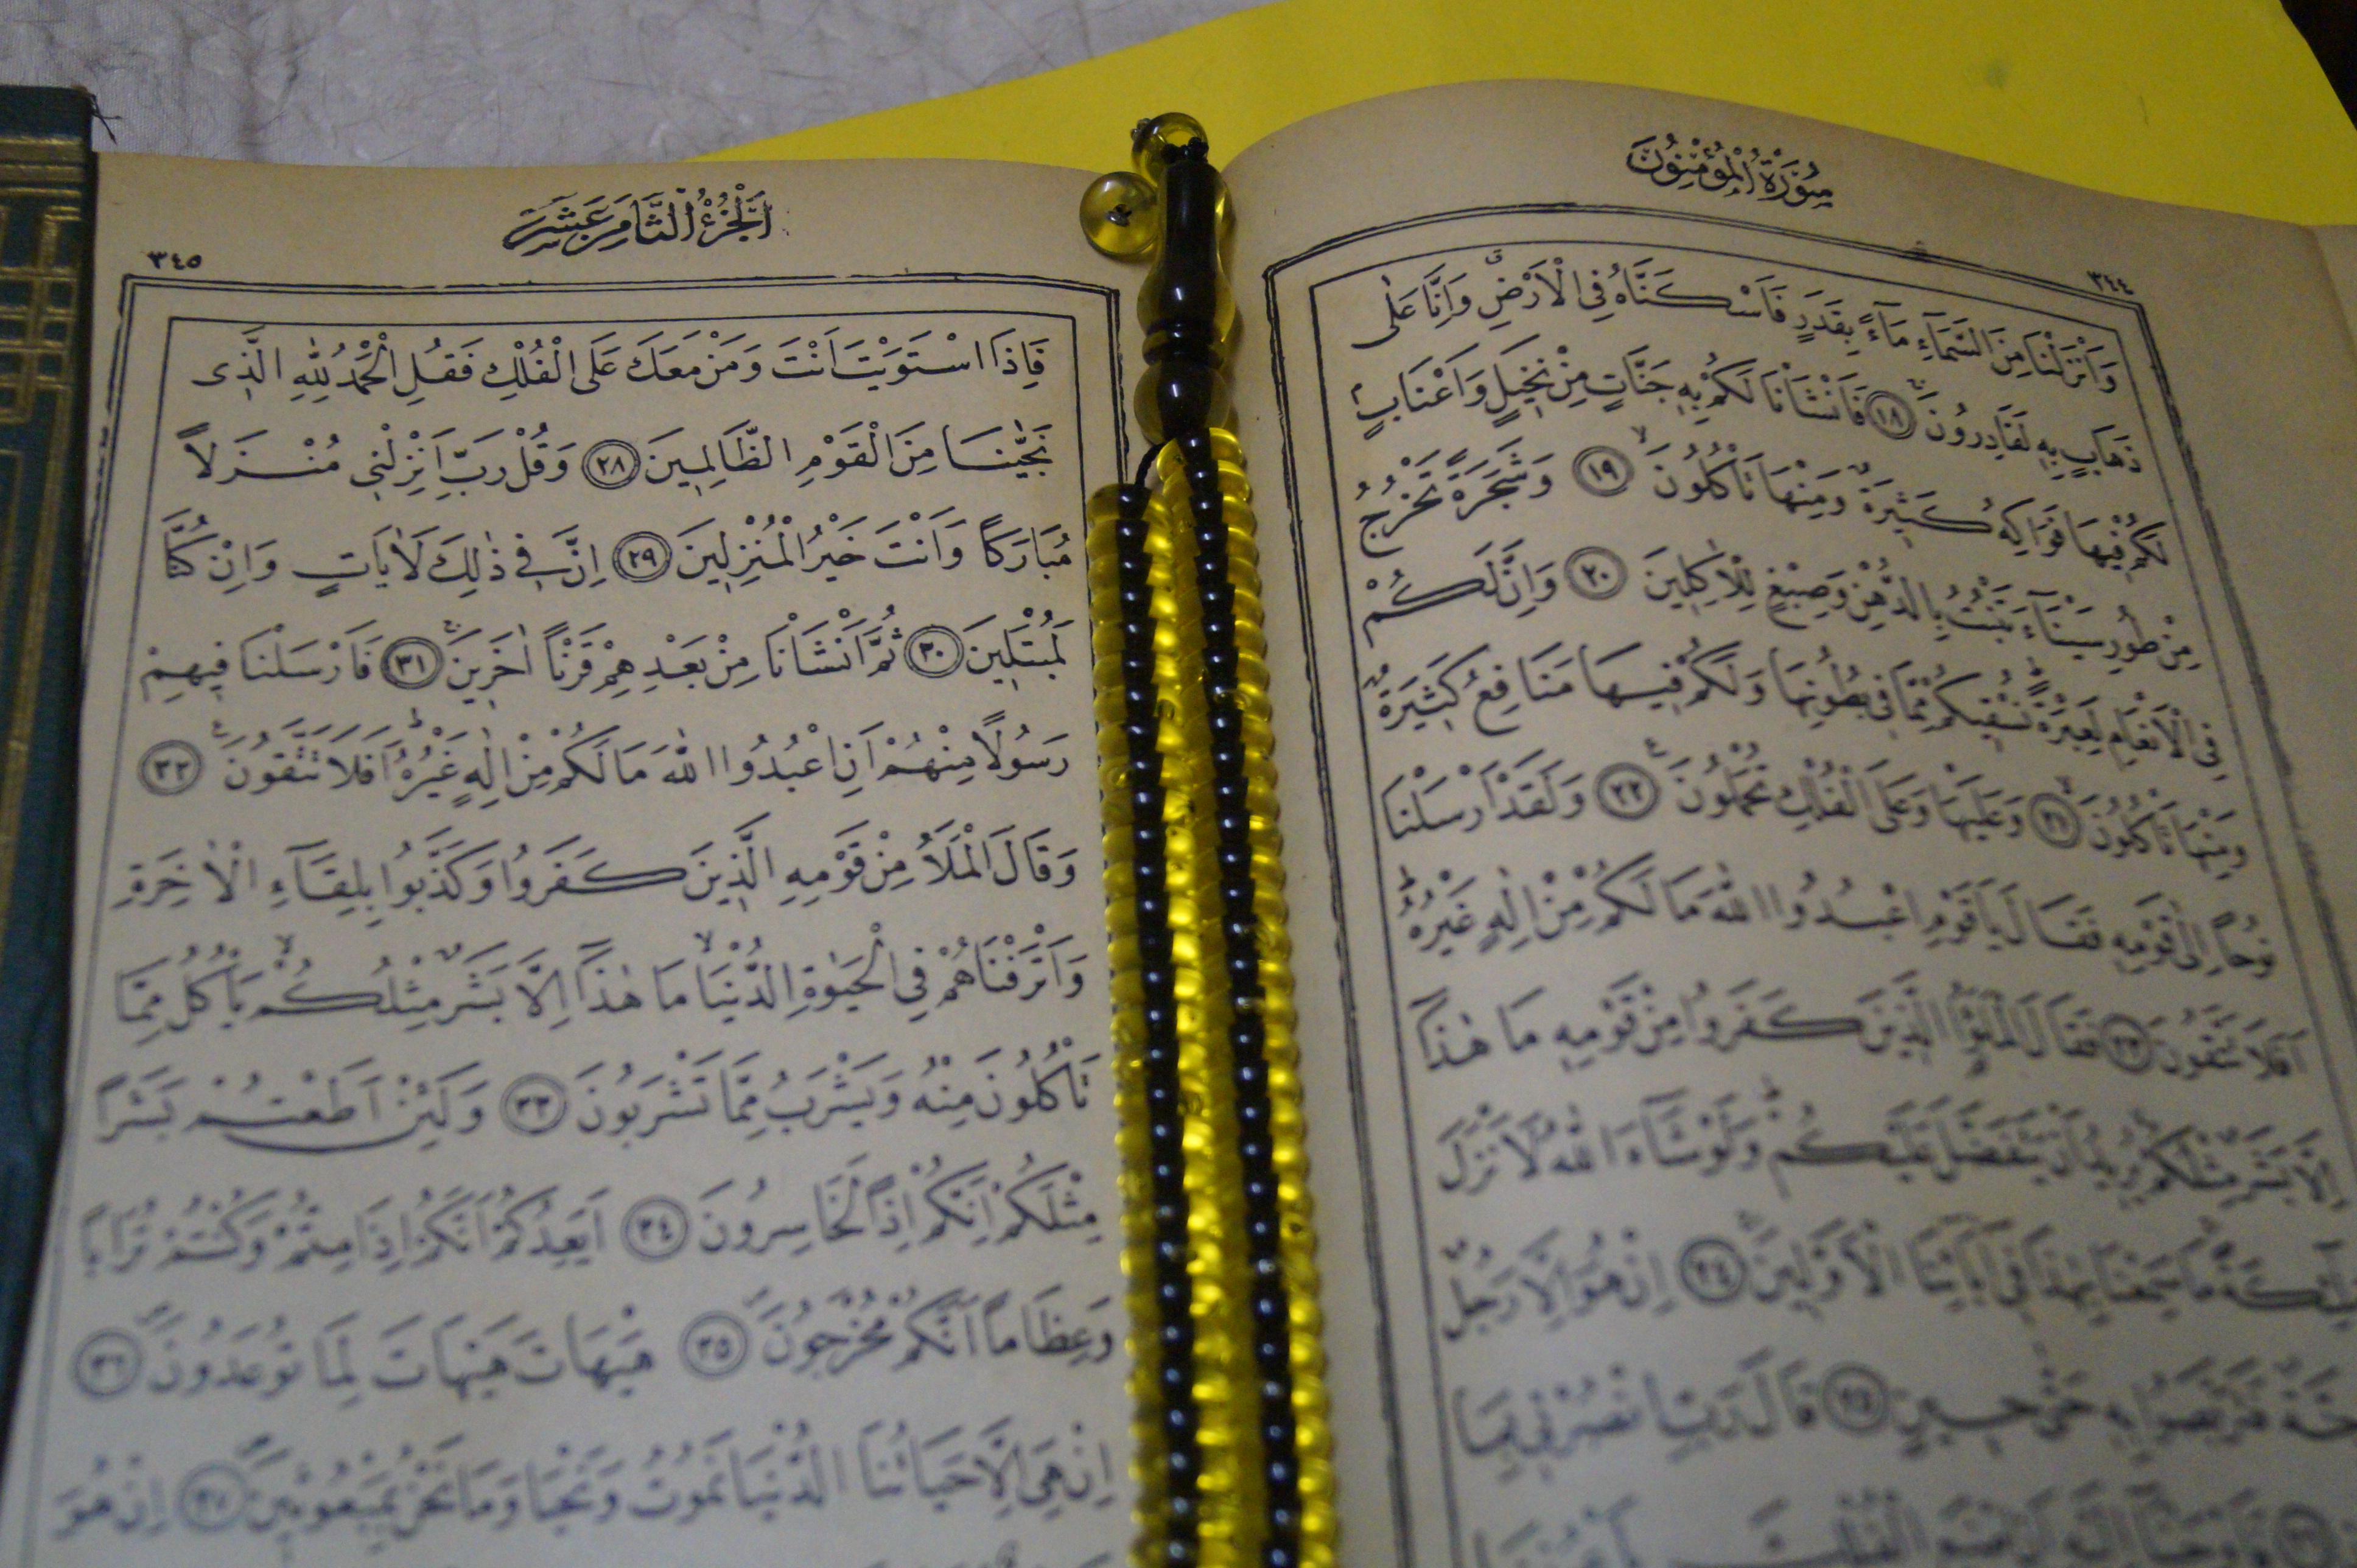 سُورَةُ الْمُؤْمِنُونَ
٣٤٤
وَاَنْزَلْنَا مِنَ السَّمَآءِ مَآءً بِقَدَرٍ فَاَسْكَنَّاهُ فِي الْاَرْضِ وَاِنَّا عَلٰى
ذَهَابٍ بِهِ لَقَادِرُونَ ١٨ فَاَنْشَاْنَا لَكُمْ بِهِ جَنَّاتٍ مِنْ نَخِيلٍ وَاَعْنَابٍ
لَكُمْ فِيهَا فَوَاكِهُ كَثِيرَةٌ وَمِنْهَا تَاْكُلُونَ ١٩ وَشَجَرَةً تَخْرُجُ
مِنْ طُورِ سَيْنَآءَ تَنْبُتُ بِالدُّهْنِ وَصِبْغٍ لِلْاٰكِلِينَ ٢٠ وَاِنَّ لَكُمْ
فِي الْاَنْعَامِ لَعِبْرَةً نُسْقِيكُمْ مِمَّا فِي بُطُونِهَا وَلَكُمْ فِيهَا مَنَافِعُ كَثِيرَةٌ
وَمِنْهَا تَاْكُلُونَ ٢١ وَعَلَيْهَا وَعَلَى الْفُلْكِ تُحْمَلُونَ ٢٢ وَلَقَدْ اَرْسَلْنَا
نُوحًا اِلٰى قَوْمِهِ فَقَالَ يَا قَوْمِ اعْبُدُوا اللّٰهَ مَا لَكُمْ مِنْ اِلٰهٍ غَيْرُهُ
اَفَلَا تَتَّقُونَ ٢٣ فَقَالَ الْمَلَؤُا الَّذِينَ كَفَرُوا مِنْ قَوْمِهِ مَا هٰذَا
اِلَّا بَشَرٌ مِثْلُكُمْ يُرِيدُ اَنْ يَتَفَضَّلَ عَلَيْكُمْ وَلَوْ شَآءَ اللّٰهُ لَاَنْزَلَ
مَلٰٓئِكَةً مَا سَمِعْنَا بِهٰذَا فِي اٰبَآئِنَا الْاَوَّلِينَ ٢٤ اِنْ هُوَ اِلَّا رَجُلٌ
جِنَّةٌ فَتَرَبَّصُوا بِهِ حَتّٰى حِينٍ ٢٥ قَالَ رَبِّ انْصُرْنِي بِمَا
اَلْجُزْءُ الثَّامِنَ عَشَرَ
٣٤٥
فَاِذَا اسْتَوَيْتَ اَنْتَ وَمَنْ مَعَكَ عَلَى الْفُلْكِ فَقُلِ الْحَمْدُ لِلّٰهِ الَّذِى
نَجّٰينَا مِنَ الْقَوْمِ الظَّالِمِينَ ٢٨ وَقُلْ رَبِّ اَنْزِلْنِي مُنْزَلًا
مُبَارَكًا وَاَنْتَ خَيْرُ الْمُنْزِلِينَ ٢٩ اِنَّ فِي ذٰلِكَ لَاٰيَاتٍ وَاِنْ كُنَّا
لَمُبْتَلِينَ ٣٠ ثُمَّ اَنْشَاْنَا مِنْ بَعْدِهِمْ قَرْنًا اٰخَرِينَ ٣١ فَاَرْسَلْنَا فِيهِمْ
رَسُولًا مِنْهُمْ اَنِ اعْبُدُوا اللّٰهَ مَا لَكُمْ مِنْ اِلٰهٍ غَيْرُهُ اَفَلَا تَتَّقُونَ ٣٢
وَقَالَ الْمَلَاُ مِنْ قَوْمِهِ الَّذِينَ كَفَرُوا وَكَذَّبُوا بِلِقَآءِ الْاٰخِرَةِ
وَاَتْرَفْنَاهُمْ فِي الْحَيٰوةِ الدُّنْيَا مَا هٰذَا اِلَّا بَشَرٌ مِثْلُكُمْ يَاْكُلُ مِمَّا
تَاْكُلُونَ مِنْهُ وَيَشْرَبُ مِمَّا تَشْرَبُونَ ٣٣ وَلَئِنْ اَطَعْتُمْ بَشَرًا
مِثْلَكُمْ اِنَّكُمْ اِذًا لَخَاسِرُونَ ٣٤ اَيَعِدُكُمْ اَنَّكُمْ اِذَا مِتُّمْ وَكُنْتُمْ تُرَابًا
وَعِظَامًا اَنَّكُمْ مُخْرَجُونَ ٣٥ هَيْهَاتَ هَيْهَاتَ لِمَا تُوعَدُونَ ٣٦
اِنْ هِيَ اِلَّا حَيَاتُنَا الدُّنْيَا نَمُوتُ وَنَحْيَا وَمَا نَحْنُ بِمَبْعُوثِينَ ٣٧ اِنْ هُوَ